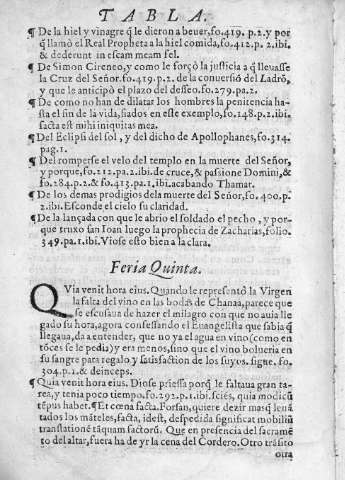 TABLA.
¶ De la hiel y vinagre q̄ le dieron a beuer, fo. 419. p. 2. y por
q̄ llamò el Real Propheta a la hiel comida, fo. 412. p. 2. ibi.
& dederunt in escam meam fel.
¶ De Simon Cireneo, y como le forçò la justicia a q̄ lleuasse
la Cruz del Señor. fo. 419. p. 2. de la conuersió del Ladrō,
y que le anticipò el plazo del desseo. fo. 279. pa. 2.
¶ De como no han de dilatar los hombres la penitencia ha-
sta el fin de la vida, fiados en este exemplo, fo. 148. p. 2. ibi.
facta est mihi iniquitas mea.
¶ Del Eclipsi del sol, y del dicho de Apollophanes, fo. 314.
pag. 1.
¶ Del romperse el velo del templo en la muerte del Señor,
y porque, fo. 212. pa. 2. ibi. de cruce, & passione Domini, &
fo. 284. p. 2. & fo. 413. pa. 1. ibi. acabando Thamar.
¶ De los demas prodigios dela muerte del Señor, fo. 400. p.
2. ibi. Esconde el cielo su claridad.
¶ De la lançada con que le abrio el soldado el pecho, y por-
que truxo san Ioan luego la prophecia de Zacharias, folio.
349. pa. 1. ibi. Viose esto bien a la clara.
Feria Quinta.
QVia venit hora eius. Quando le representò la Virgen
la falta del vino en las bodas de Chanaa, parece que
se escusaua de hazer el milagro con que no auia lle-
gado su hora, agora confessando el Euangelista que sabia q̄
llegaua, da a entender, que no ya el agua en vino (como en
tōces se le pedia) y era menos, sino que el vino bolueria en
su sangre para regalo y satisfaction de los suyos. signe. fo.
304. p. 1. & deinceps.
¶ Quia venit hora eius. Diose priessa porq̄ le faltaua gran ta-
rea, y tenia poco tiempo. fo. 292. p. 1. ibi. sciés, quia modicū
tēpus habet. ¶ Et cœna facta. Forsan, quiere dezir masq̄ leuā
tados los māteles, facta, idest, despedida significat mobiliū
translationē tāquam factorū. Que en presencia del sacramē
to del altar, fuera ha de yr la cena del Cordero. Otro trāsito
otra